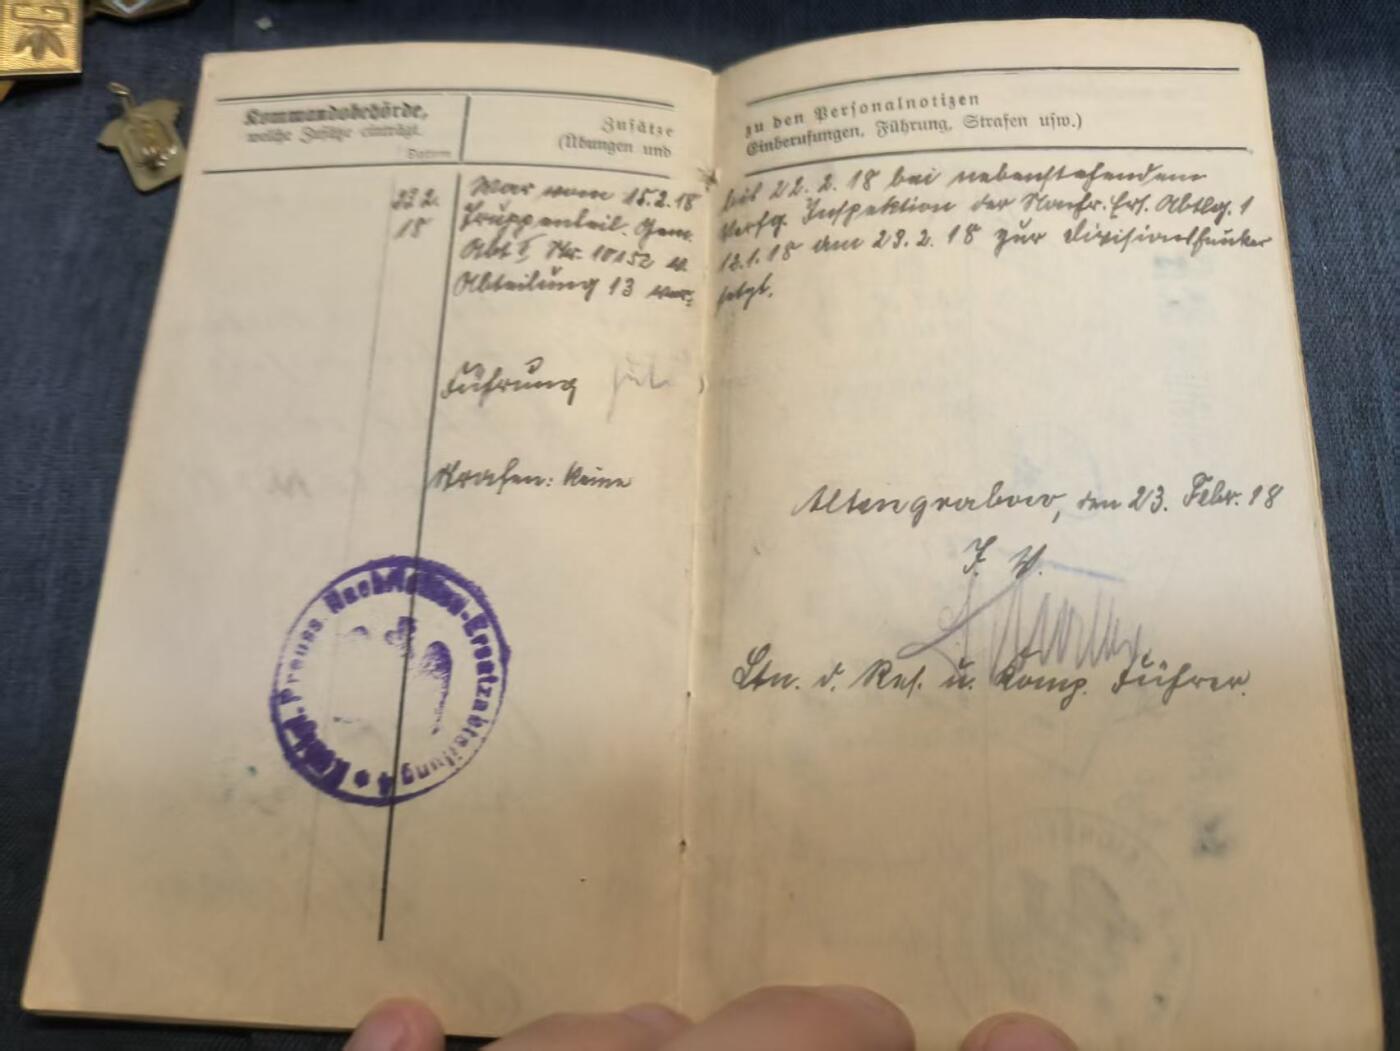 Kommandobehörde,
welche Zusätze einträgt.
Datum
Zusätze
(Übungen und
zu den Personalnotizen
Einberufungen, Führung, Strafen usw.)
23 2.
18
War vom 15.2.18 bis 22. 2. 18 bei nebenstehendem
Truppenteil. Gem. Verfg. Inspektion der Nachr. Ers. Abtlg. 1
Abt I Nr. 10152 v. 12.1.18 am 23. 2. 18 zur Divisionsfunker
Abteilung 13 versetzt.
Führung gut
Strafen: Keine
Altengrabow, den 23. Febr. 18
I. V.
Ltn. d. Res. u. Komp. Führer.
Königl. Preuss. Nachrichten-Ersatzabteilung 4